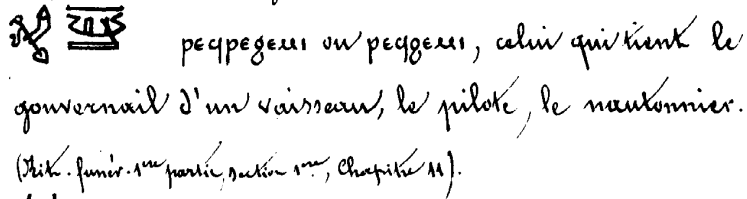 ⲣⲉϥⲣⲉϩⲉⲙⲓ ou ⲣⲉϥϩⲉⲙⲓ, celui qui tient le
gouvernail d'un vaisseau, le pilote, le nautonnier.
(Rit. funér. 1ere partie, section 1ere, Chapitre 11).